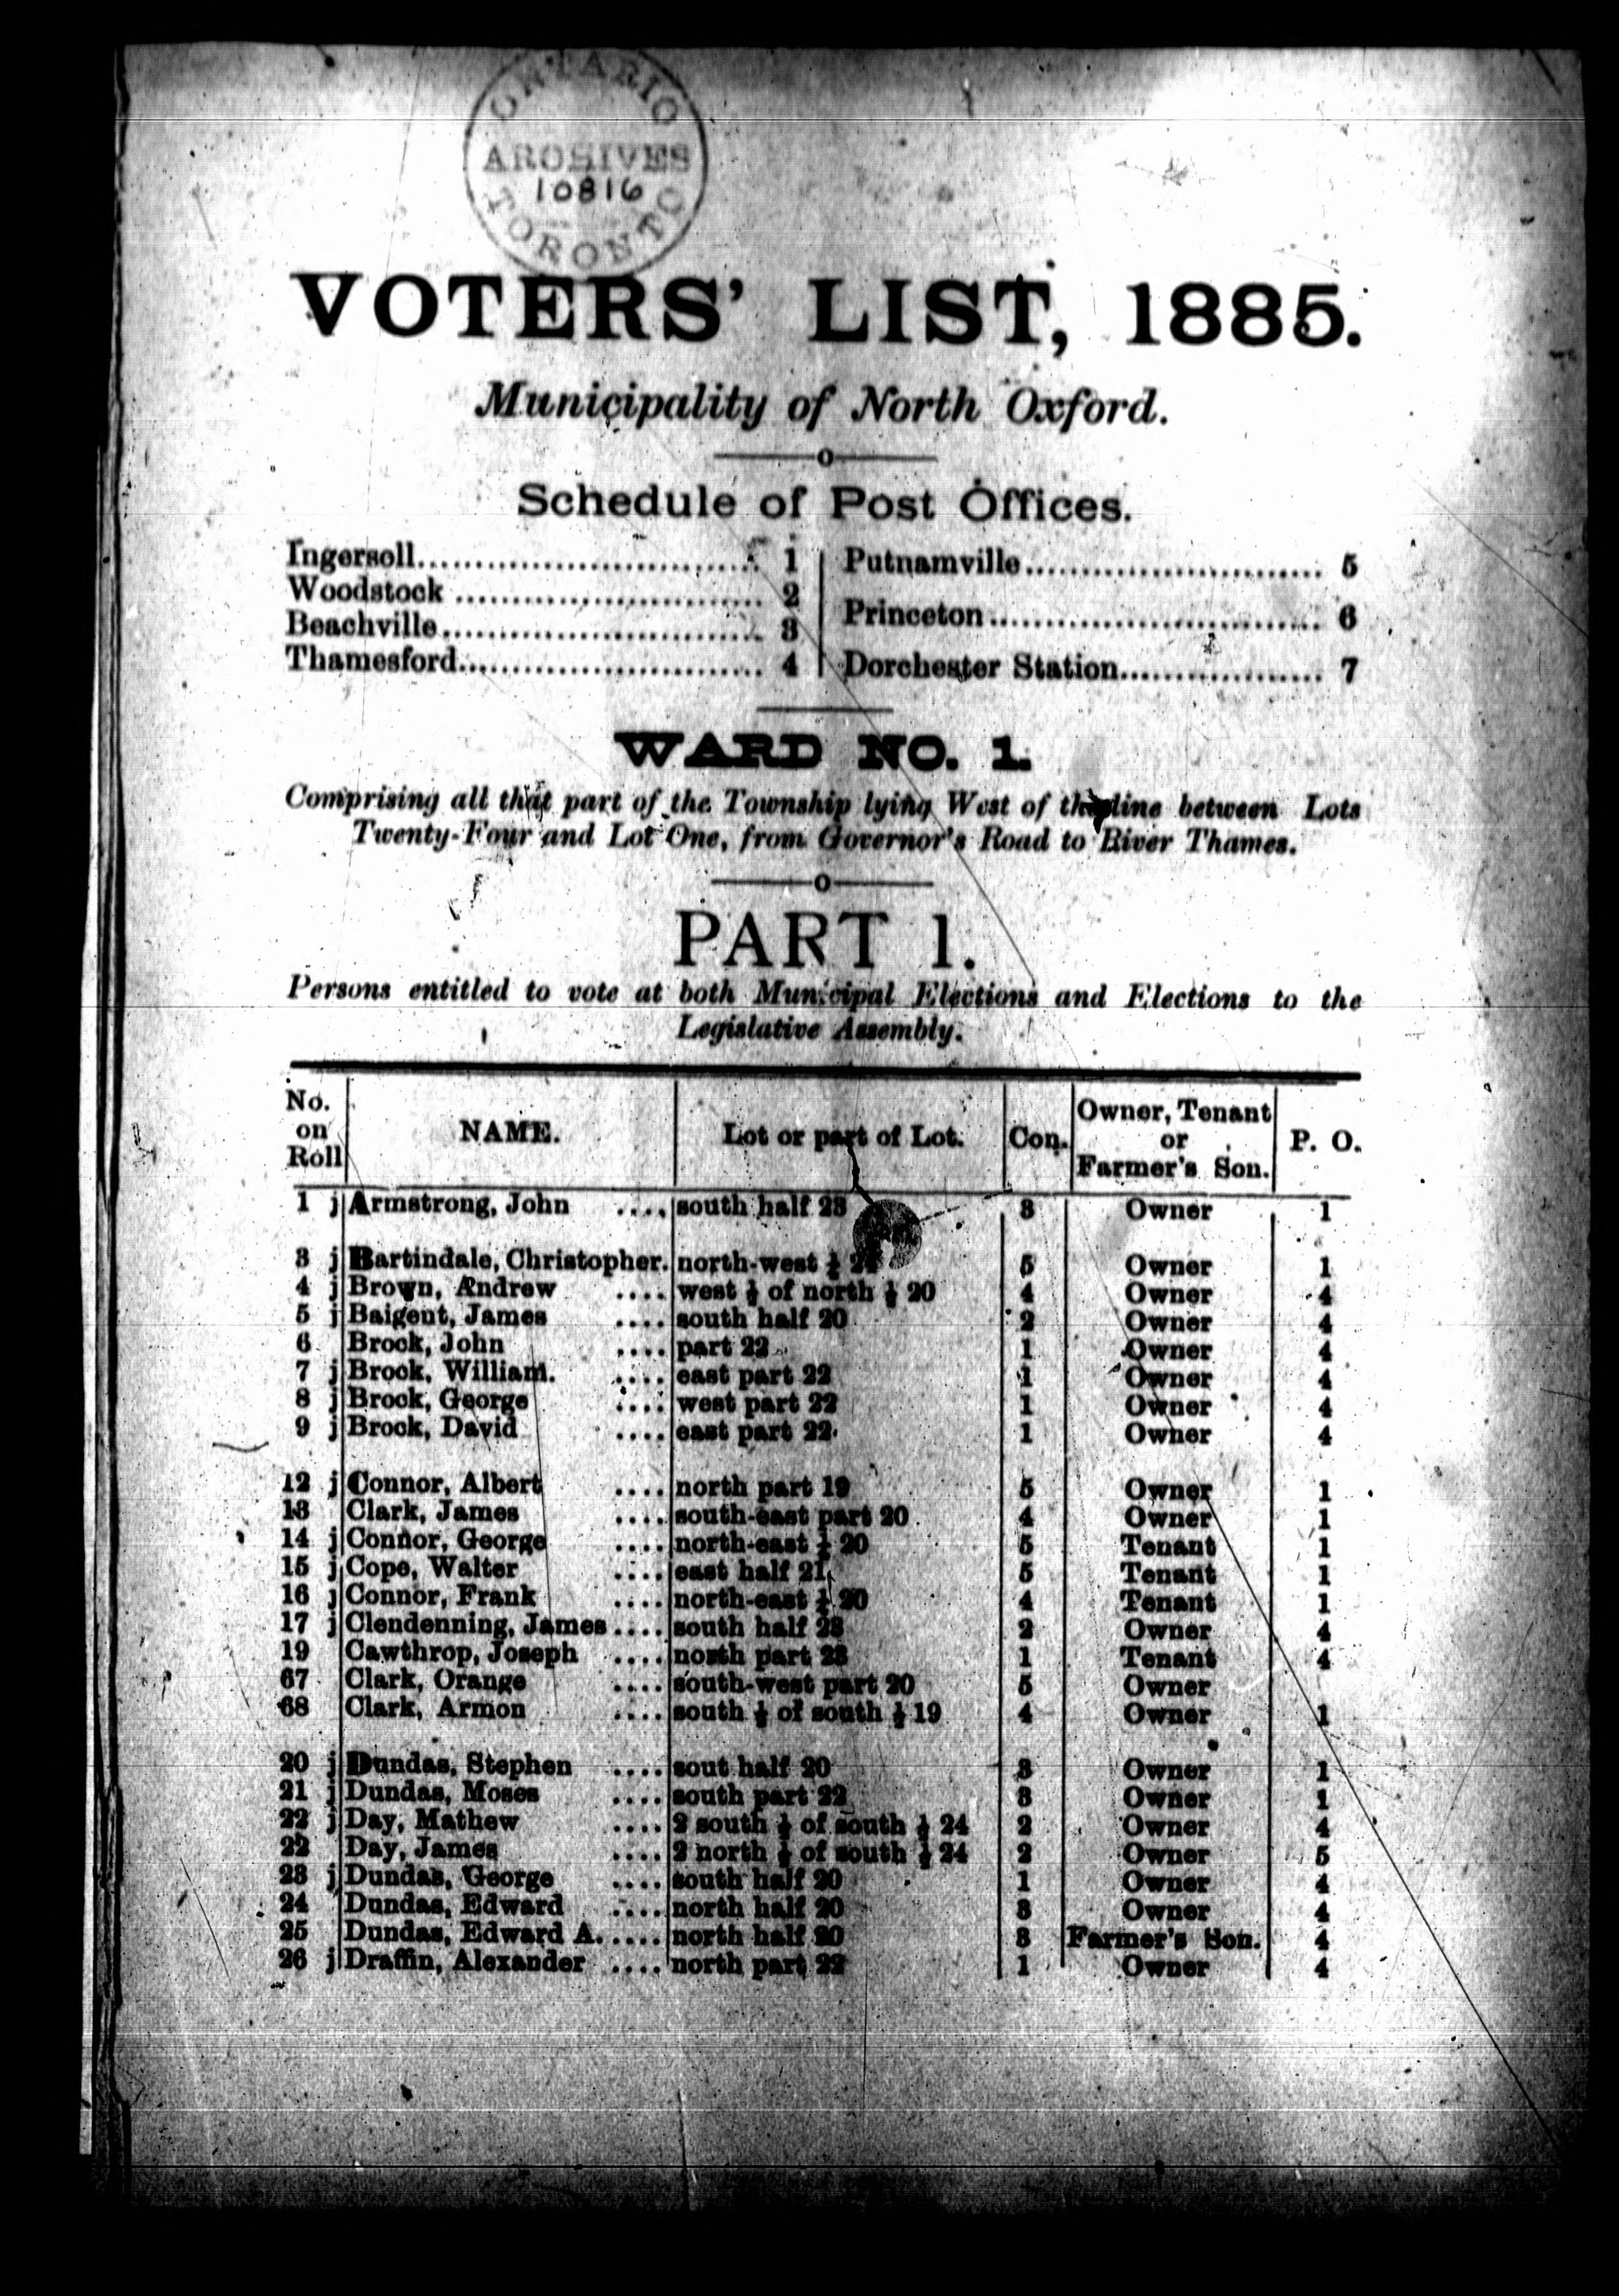 ONTARIO
ARCHIVES
10816
TORONTO
VOTERS' LIST, 1885.
Municipality of North Oxford.
Schedule of Post Offices.
Ingersoll.............................. 1
Woodstock ........................... 2
Beachville............................. 3
Thamesford........................... 4
Putnamville.......................... 5
Princeton.............................. 6
Dorchester Station.................. 7
WARD NO. 1.
Comprising all that part of the Township lying West of the line between Lots
Twenty-Four and Lot One, from Governor's Road to River Thames.
PART 1.
Persons entitled to vote at both Municipal Elections and Elections to the
Legislative Assembly.
No. on Roll | NAME. | Lot or part of Lot. | Con. | Owner, Tenant or Farmer's Son. | P. O.
1 j Armstrong, John .... south half 23 3 Owner 1
3 j Bartindale, Christopher. north-west 24 5 Owner 1
4 j Brown, Andrew .... west ½ of north ½ 20 4 Owner 4
5 j Baigent, James .... south half 20 2 Owner 4
6 Brock, John .... part 22 1 Owner 4
7 j Brock, William. .... east part 22 1 Owner 4
8 j Brock, George .... west part 22 1 Owner 4
9 j Brock, David .... east part 22 1 Owner 4
12 j Connor, Albert .... north part 19 5 Owner 1
13 Clark, James .... south-east part 20 4 Owner 1
14 j Connor, George .... north-east 20 5 Tenant 1
15 j Cope, Walter .... east half 21 5 Tenant 1
16 j Connor, Frank .... north-east 20 4 Tenant 1
17 j Clendenning, James .... south half 23 2 Owner 4
19 Cawthrop, Joseph .... north part 23 1 Tenant 4
67 Clark, Orange .... south-west part 20 5 Owner
68 Clark, Armon .... south ½ of south ½ 19 4 Owner 1
20 j Dundas, Stephen .... sout half 20 3 Owner 1
21 j Dundas, Moses .... south part 22 3 Owner 1
22 j Day, Mathew .... 2 south ½ of south ½ 24 2 Owner 4
22 Day, James .... 2 north ½ of south ½ 24 2 Owner 5
23 j Dundas, George .... south half 20 1 Owner 4
24 Dundas, Edward .... north half 20 3 Owner 4
25 Dundas, Edward A. .... north half 20 3 Farmer's Son. 4
26 j Draffin, Alexander .... north part 22 1 Owner 4